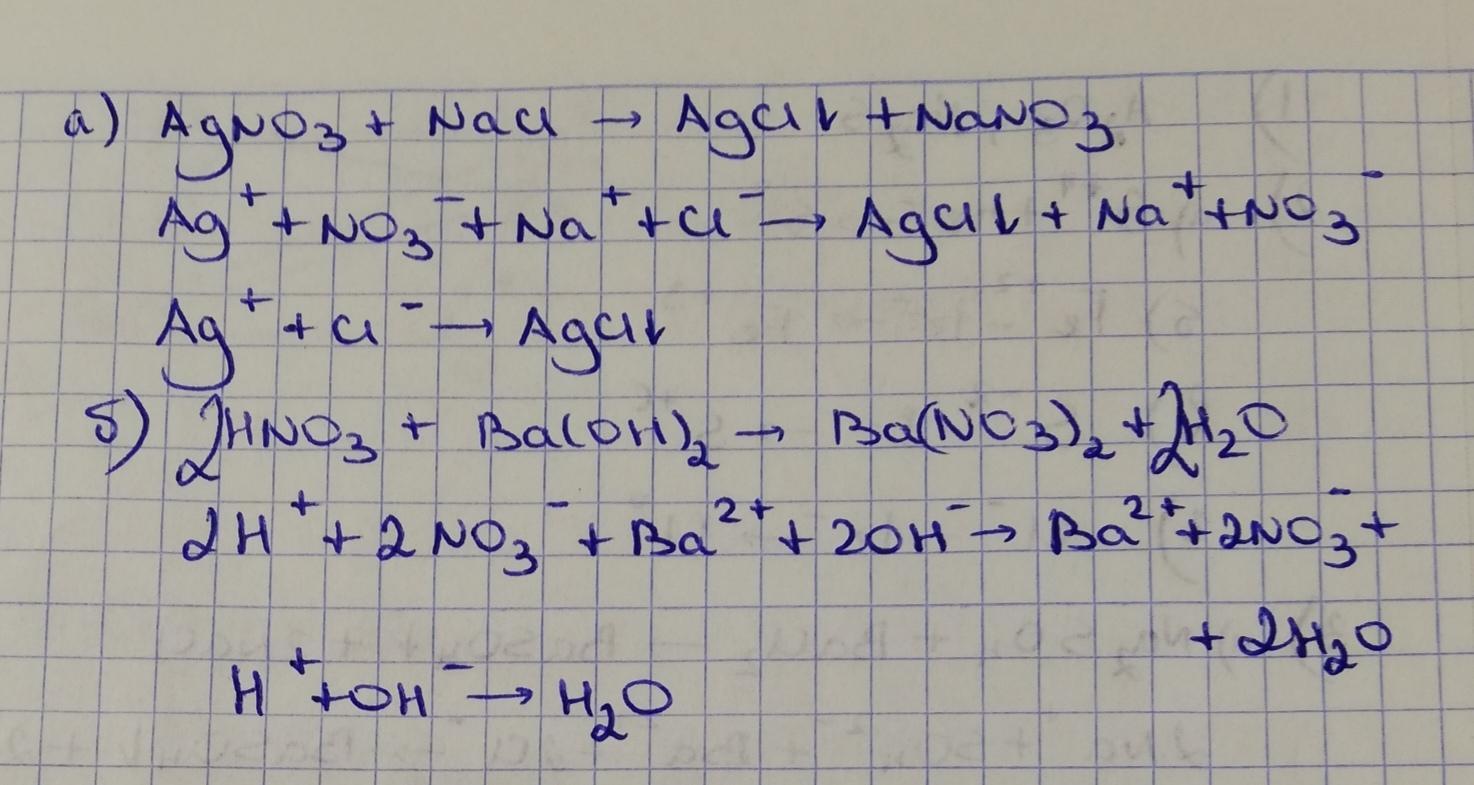 а) AgNO₃ + NaCl → AgCl↓ + NaNO₃
Ag⁺ + NO₃⁻ + Na⁺ + Cl⁻ → AgCl↓ + Na⁺ + NO₃⁻
Ag⁺ + Cl⁻ → AgCl↓
б) 2HNO₃ + Ba(OH)₂ → Ba(NO₃)₂ + 2H₂O
2H⁺ + 2NO₃⁻ + Ba²⁺ + 2OH⁻ → Ba²⁺ + 2NO₃⁻ +
+ 2H₂O
H⁺ + OH⁻ → H₂O